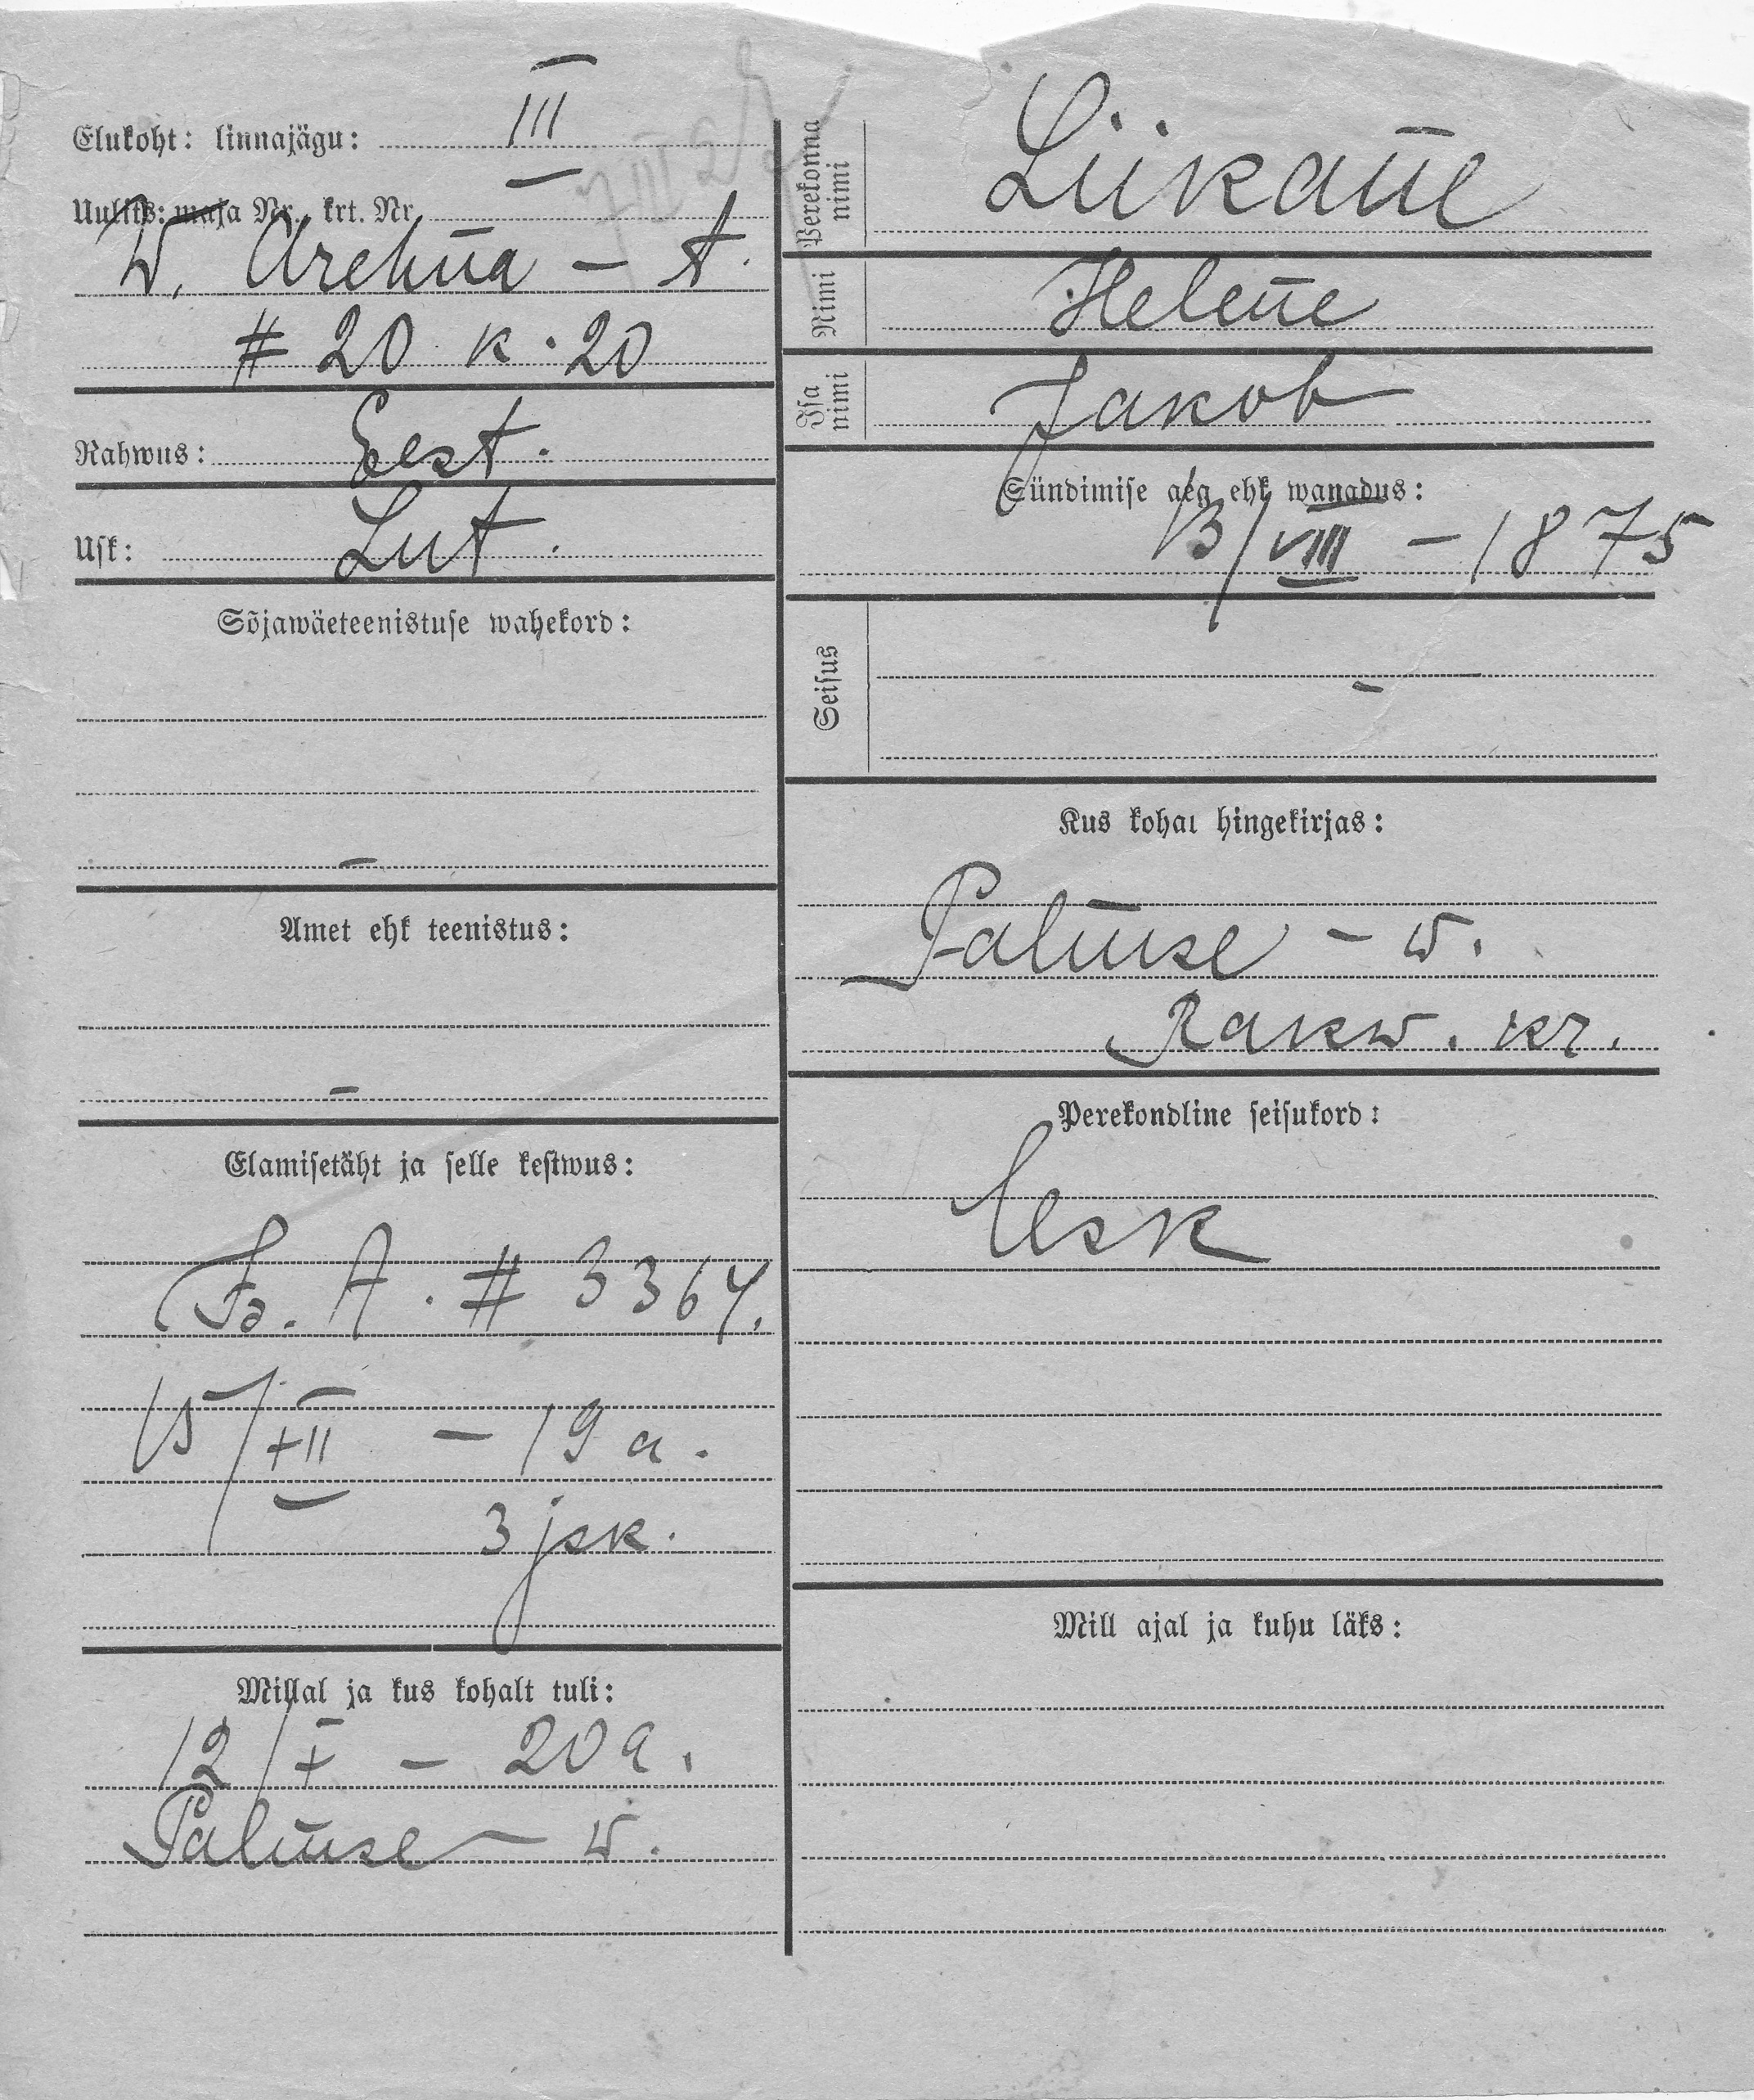 Elukoht: linnajägu: III
Uulits: maja Nr. krt. Nr.
W. Arehna - t.
# 20 k. 20
Rahwus: Eest.
Usk: Lut.
Sõjawäeteenistuse wahekord:
-
Amet ehk teenistus:
-
Elamisetäht ja selle kestwus:
A. # 3364.
15/XII - 19 a.
3 jsk.
Millal ja kus kohalt tuli:
12/X - 20 a.
Palmse - w.
Perekonna nimi Liikane
Nimi Helene
Isa nimi Jakob
Sündimise aeg ehk wanadus:
13/VIII - 1875
Seisus
-
Kus kohal hingekirjas:
Palmse - w.
Rakw. kr.
Perekondline seisukord:
Lesk
Mill ajal ja kuhu läks: